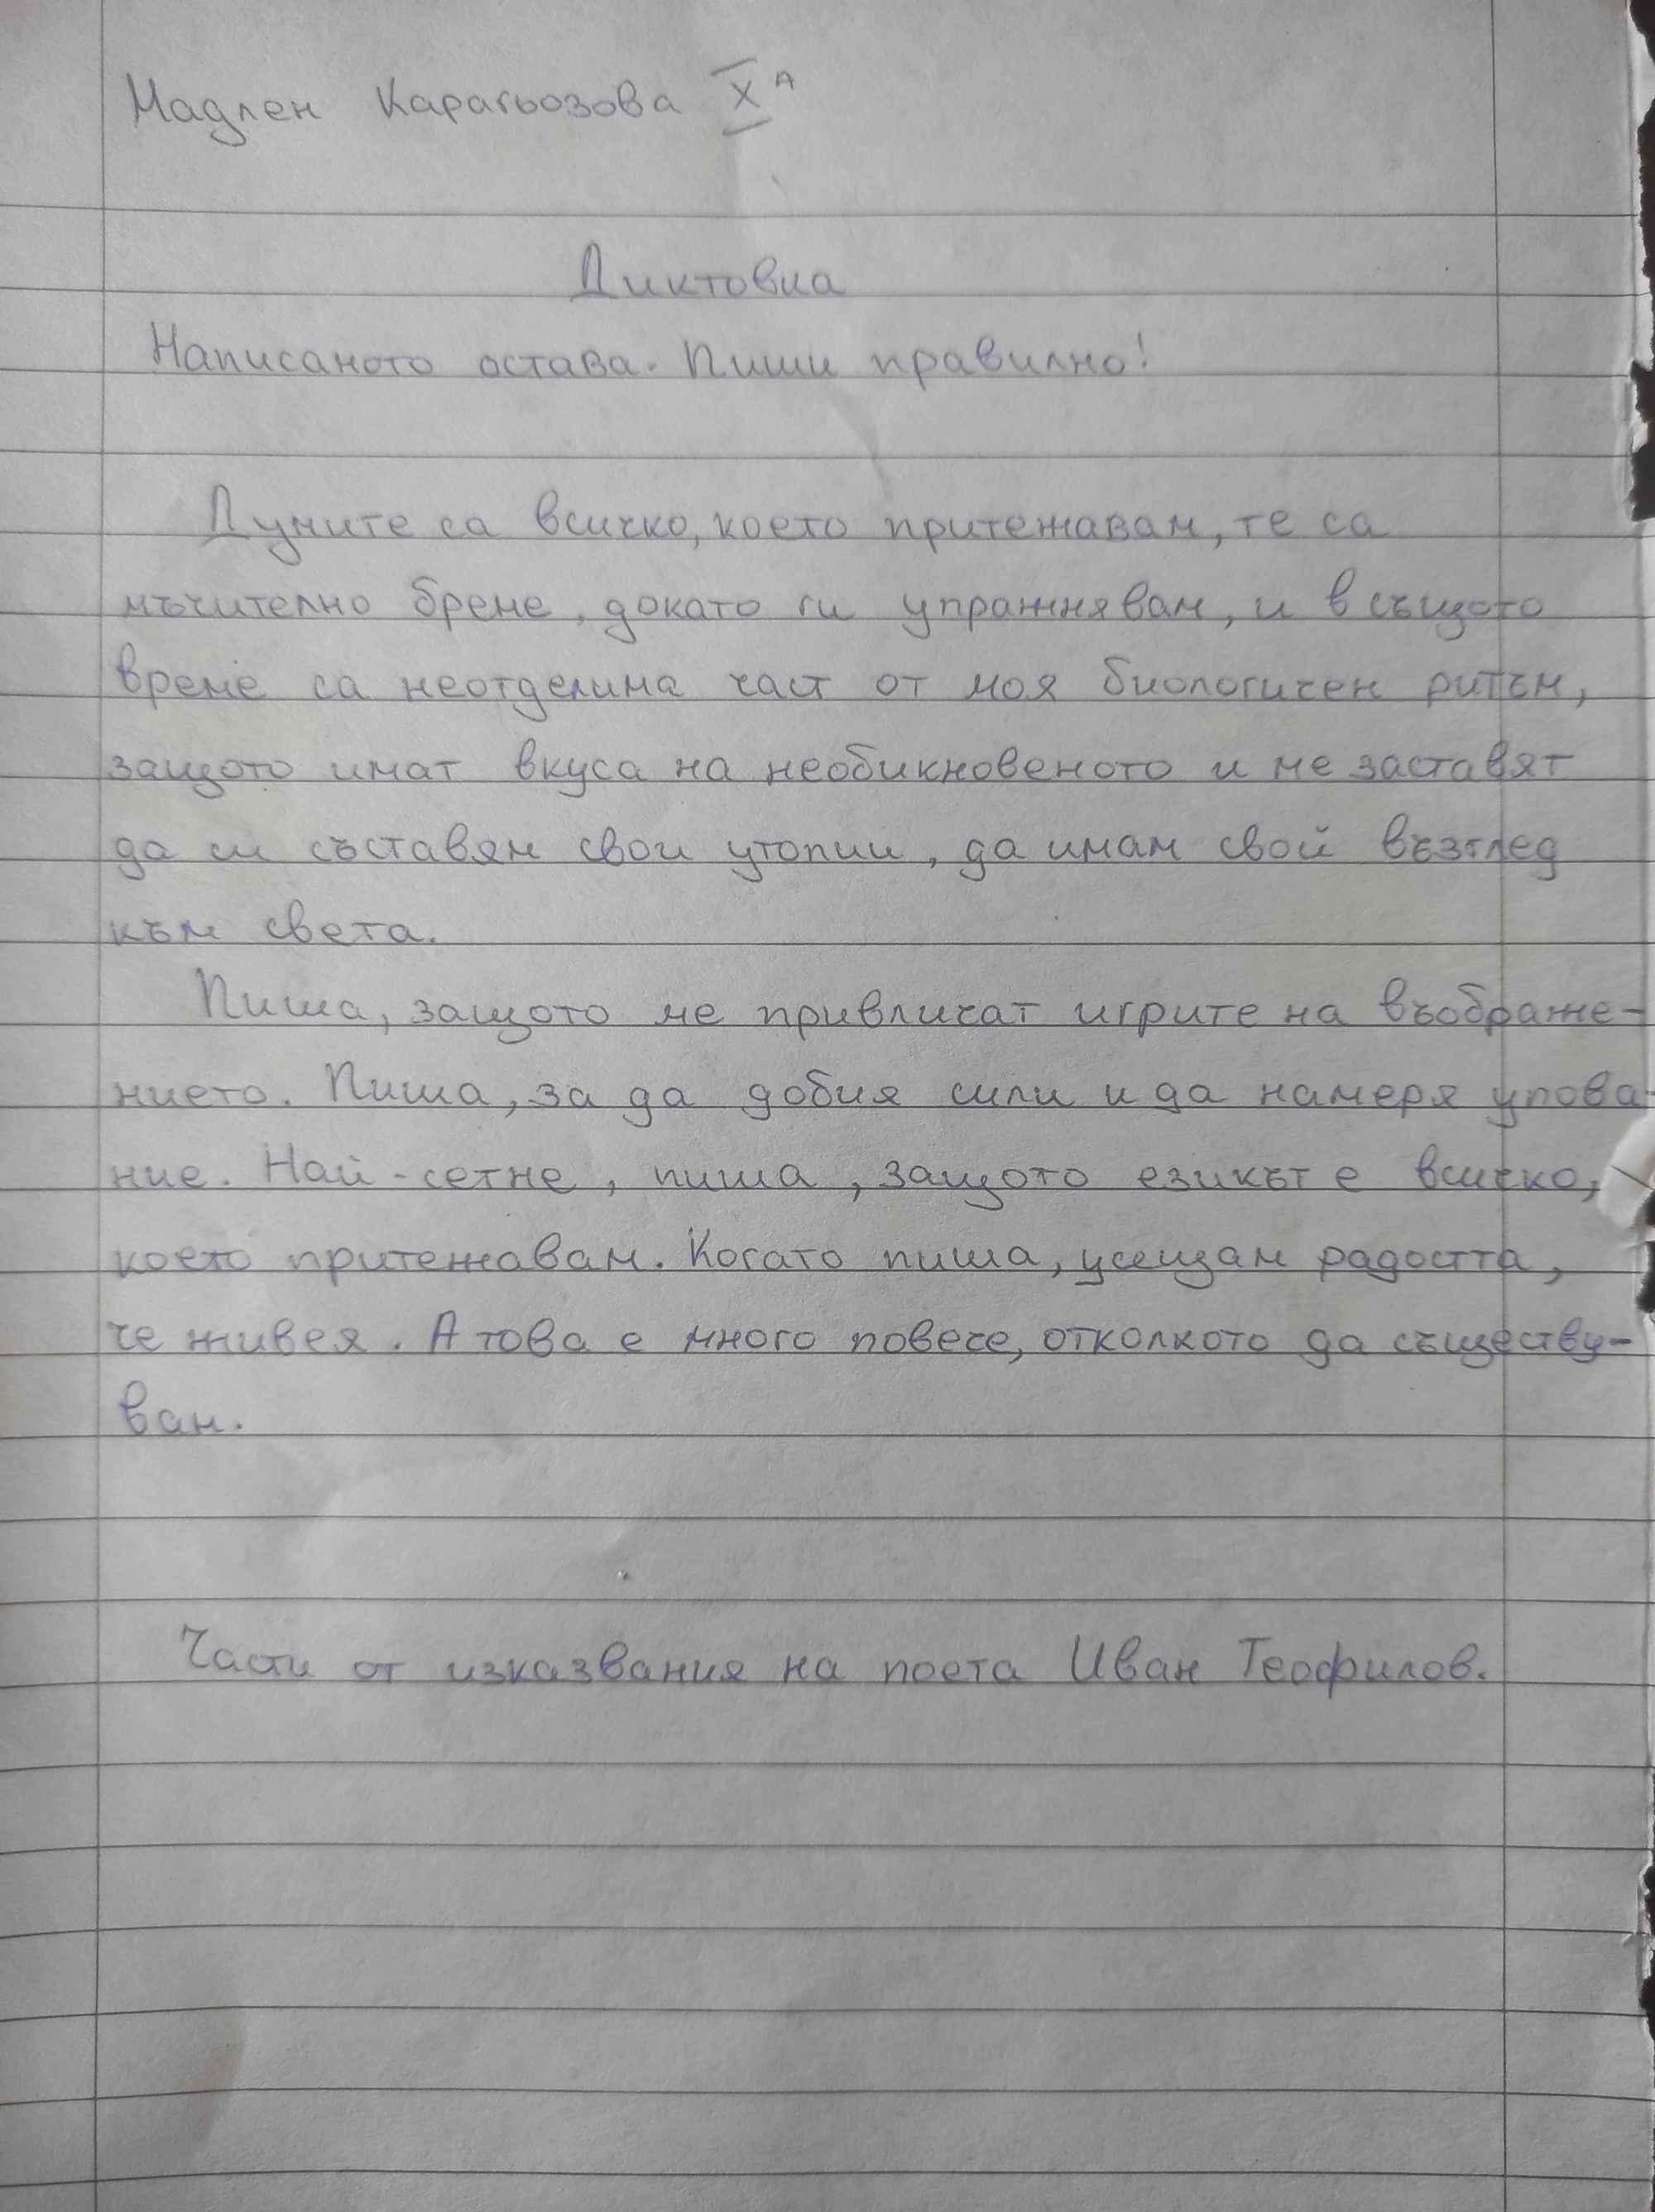 Мадлен Карагьозова X А
Диктовка
Написаното остава. Пиши правилно!
Думите са всичко, което притежавам, те са
мъчително бреме, докато ги упражнявам, и в същото
време са неотделима част от моя биологичен ритъм,
защото имат вкуса на необикновеното и ме заставят
да си съставям свои утопии, да имам свой възглед
към света.
Пиша, защото ме привличат игрите на въображе-
нието. Пиша, за да добия сили и да намеря упова-
ние. Най-сетне, пиша, защото езикът е всичко,
което притежавам. Когато пиша, усещам радостта,
че живея. А това е много повече, отколкото да съществу-
вам.
Части от изказвания на поета Иван Теофилов.